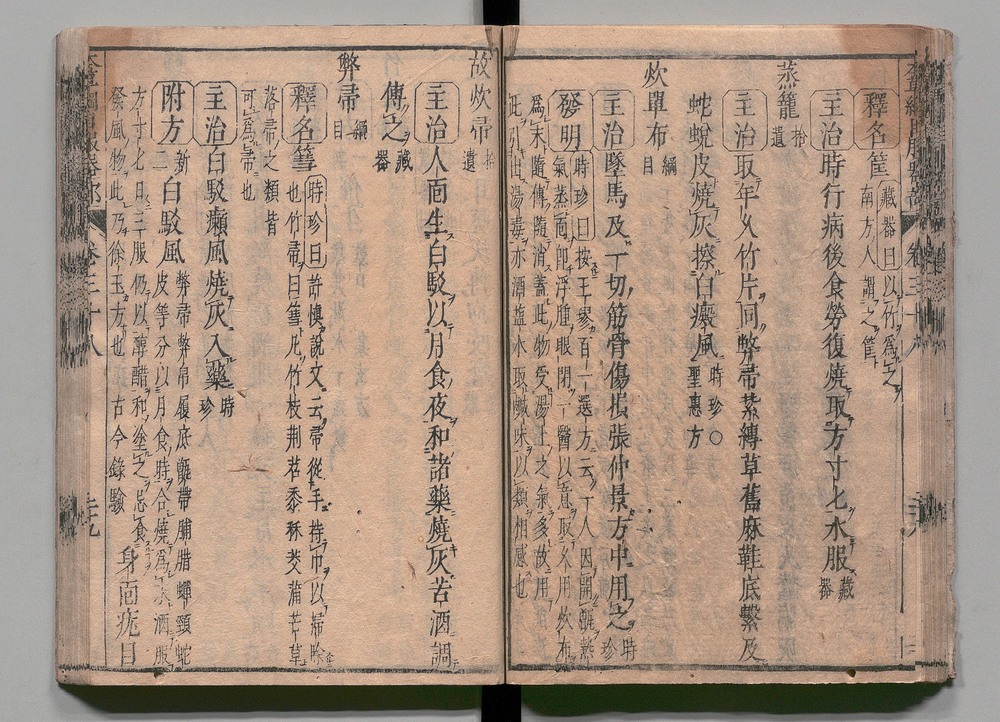 釋名筐藏器曰以竹爲之
南方人謂之筐
主治時行病後食勞復燒取方寸匕水服藏器
蒸籠拾遺
主治取年久竹片同弊帚紮縛草舊麻鞋底繫及
蛇蛻皮燒灰擦白癜風時珍○聖惠方
炊單布綱目
主治墜馬及一切筋骨傷損張仲景方中用之時珍
發明時珍曰按王璆百一選方云一人因開甑熱
氣蒸面即浮腫眼閉一醫以意取久用炊布
爲末隨傅隨消蓋此物受湯上之氣多故用
此引出湯毒亦酒鹽水取鹹味以類相感也
故炊帚拾遺
主治人面生白駁以月食夜和諸藥燒灰苦酒調
傅之藏器
弊帚綱目
釋名篲時珍曰許慎說文云帚從手持巾以掃除
也竹帚曰篲凡竹枝荆苕黍秫茭蒲芒草
落帚之類皆
可爲帚也
主治白駁癩風燒灰入藥時珍
附方新二白駁風弊帚弊帛履底甑帶脯腊蟬頸蛇
皮等分以月食時合燒爲末酒服
方寸匕日三服仍以醇醋和塗之忌食
發風物此乃徐玉方也古今錄驗
身面疣目